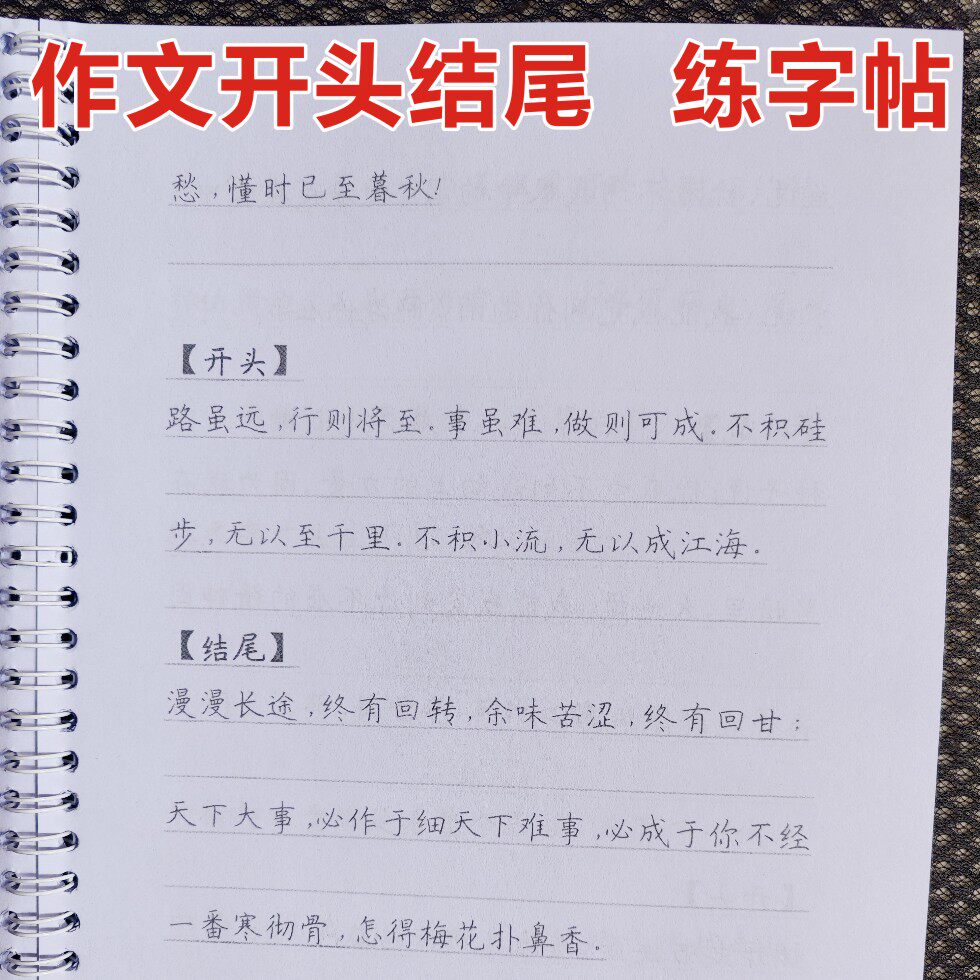 作文开头结尾 练字帖
愁,懂时已至暮秋!
【开头】
路虽远,行则将至.事虽难,做则可成.不积硅
步,无以至千里.不积小流,无以成江海.
【结尾】
漫漫长途,终有回转,余味苦涩,终有回甘;
天下大事,必作于细天下难事,必成于你不经
一番寒彻骨,怎得梅花扑鼻香.